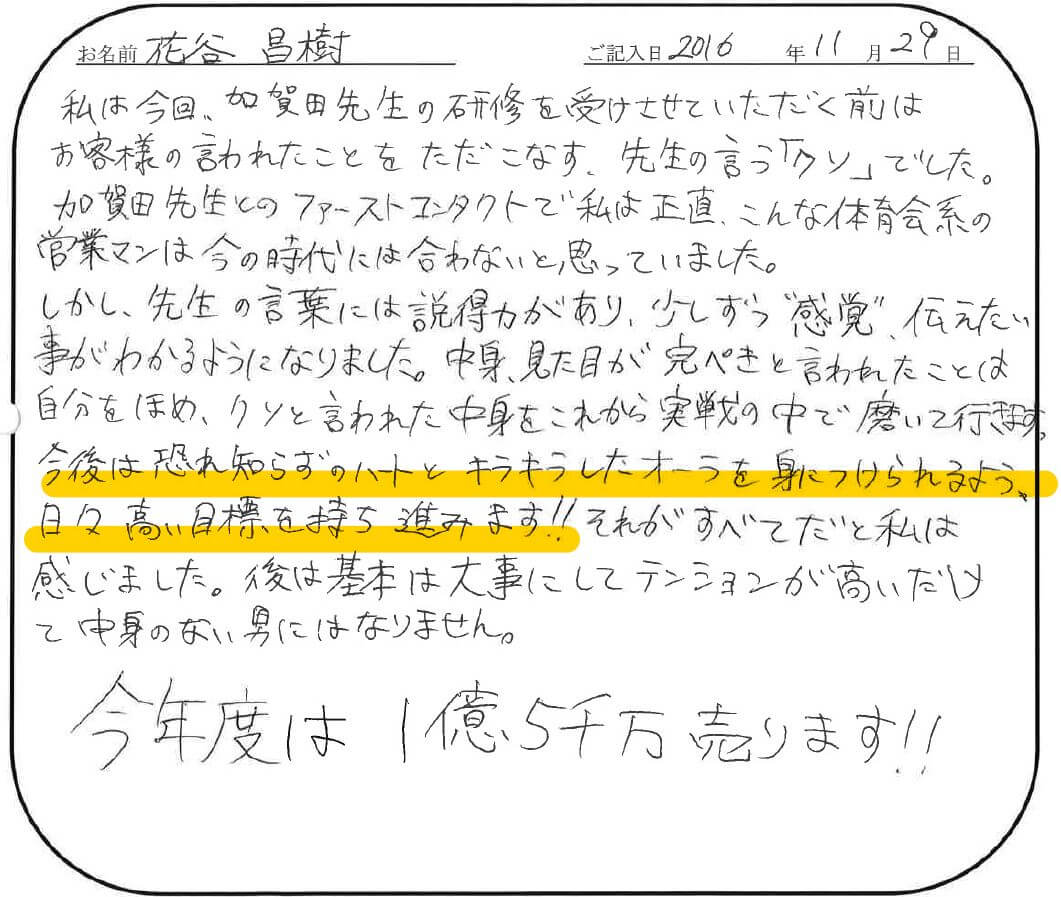 お名前 花谷 昌樹 ご記入日 2016 年 11 月 29 日
私は今回、加賀田先生の研修を受けさせていただく前は
お客様の言われたことを ただこなす、先生の言う「クソ」でした。
加賀田先生とのファーストコンタクトで私は正直、こんな体育会系の
営業マンは今の時代には合わないと思っていました。
しかし、先生の言葉には説得力があり、少しずつ"感覚"、伝えたい
事がわかるようになりました。中身、見た目が完ぺきと言われたことは
自分をほめ、クソと言われた中身をこれから実戦の中で磨いて行きます。
今後は恐れ知らずのハートとキラキラしたオーラを身につけられるよう、
日々高い目標を持ち進みます!!それがすべてだと私は
感じました。後は基本は大事にしてテンションが高いだけ
で中身のない男にはなりません。
今年度は1億5千万売ります!!